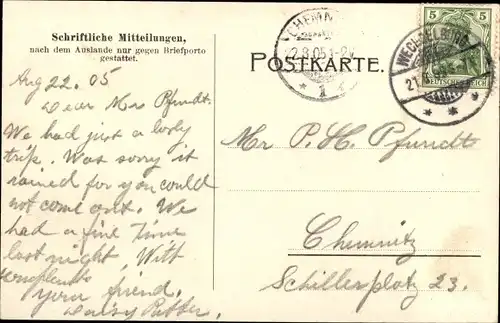 Schriftliche Mitteilungen,
nach dem Auslande nur gegen Briefporto
gestattet.
Aug 22. 05
Dear Mr Pfundt.
We had just a lovly
trip. Was sorry it
rained for you could
not come out. We
had a fine time
last night. With
your friend.
Daisy Ritter.
POSTKARTE.
CHEMN
22.8.05 1-2V
* 1
5 5
DEUTSCHES REICH
WECHSELBURG
21
Mr P. H. Pfundt
Chemnitz
Schillerplatz 23.